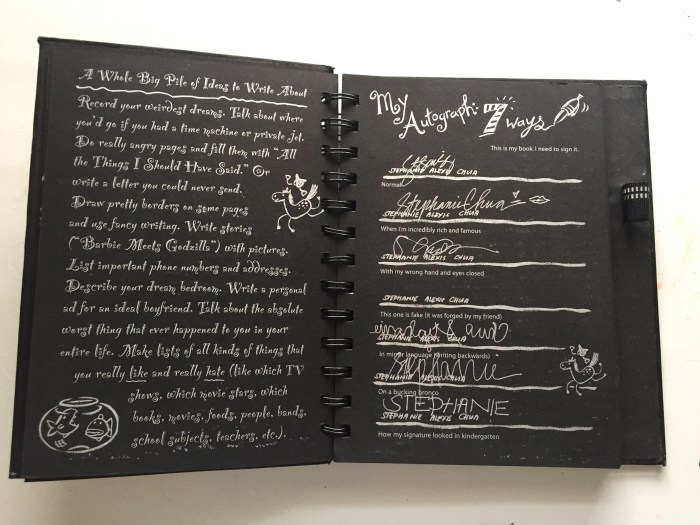 A Whole Big Pile of Ideas to Write About
Record your weirdest dreams. Talk about where
you'd go if you had a time machine or private jet.
Do really angry pages and fill them with "All
the Things I Should Have Said." Or
write a letter you could never send.
Draw pretty borders on some pages
and use fancy writing. Write stories
("Barbie Meets Godzilla") with pictures.
List important phone numbers and addresses.
Describe your dream bedroom. Write a personal
ad for an ideal boyfriend. Talk about the absolute
worst thing that ever happened to you in your
entire life. Make lists of all kinds of things that
you really like and really hate (like which TV
shows, which movie stars, which
books, movies, foods, people, bands,
school subjects, teachers, etc.).
My Autograph: 7 ways
This is my book, I need to sign it.
STEPHANIE ALEXIS CHUA
Normal
Stephanie Chua
STEPHANIE ALEXIS CHUA
When I'm incredibly rich and famous
STEPHANIE ALEXIS CHUA
With my wrong hand and eyes closed
STEPHANIE ALEXIS CHUA
This one is fake (it was forged by my friend)
STEPHANIE ALEXIS CHUA
In mirror language (writing backwards)
Stephanie
STEPHANIE ALEXIS CHUA
On a bucking bronco
STEPHANIE
STEPHANIE ALEXIS CHUA
How my signature looked in kindergarten